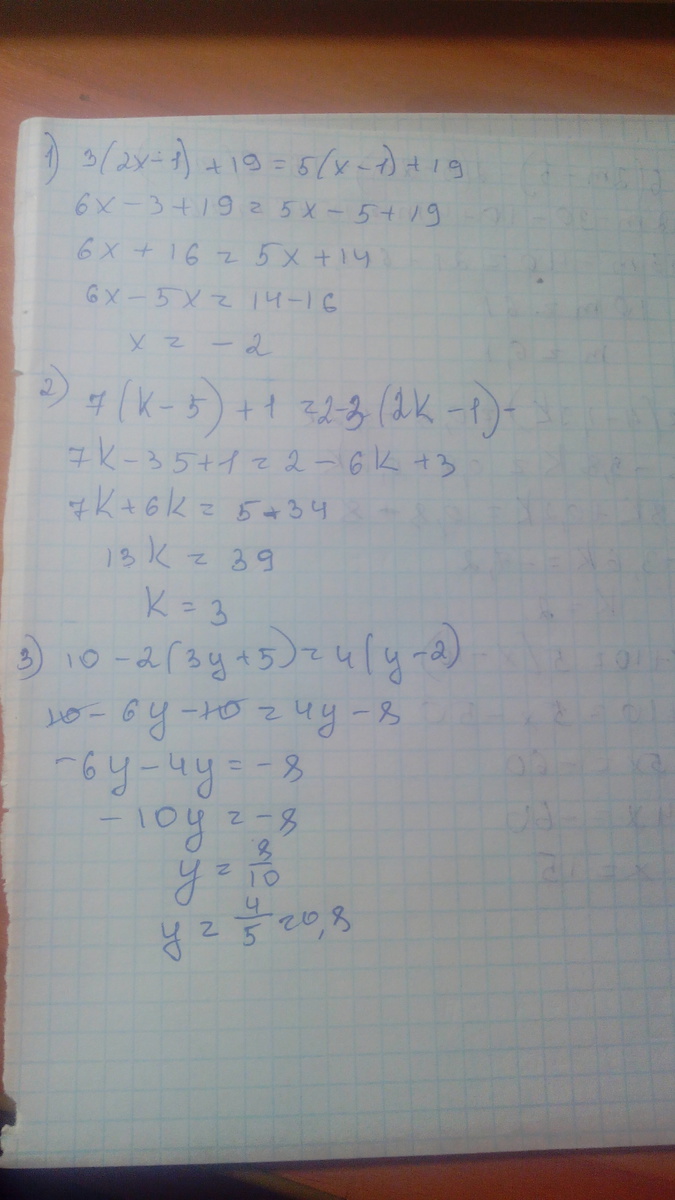 1) 3(2x-1)+19=5(x-1)+19
6x-3+19=5x-5+19
6x+16=5x+14
6x-5x=14-16
x=-2
2) 7(k-5)+1=2-3(2k-1)-
7k-35+1=2-6k+3
7k+6k=5+34
13k=39
k=3
3) 10-2(3y+5)=4(y-2)
10-6y-10=4y-8
-6y-4y=-8
-10y=-8
y=8/10
y=4/5=0,8